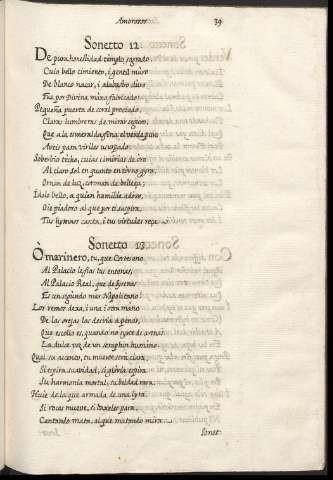 Amorosos 39
Sonetto 12.
De pura honestidad templo sagrado,
Cuio bello cimiento, i gentil muro
De blanco nacar, i alabastro duro
Fue por Divina mano fabricado:
Pequeña puerta de coral preciado,
Claras lumbreras de mirar seguro,
Que a la esmeralda fina, el verde puro
Aveis para viriles usurpado:
Soberbio techo, cuias cimbrias de oro
Al claro Sol en quanto en torno gyra,
Ornan de luz, coronan de belleza;
Idolo bello, a quien humilde adoro,
Oie piadoso al que por ti suspira,
Tus hymnos canta, i tus virtudes reza
Sonetto 13.
O marinero, tu, que Cortesano
Al Palacio le fias tus entenas,
Al Palacio Real, que de Syrenas
Es un segundo mar Napolitano:
Los remos dexa, i una, i otra mano
De las orejas las desvia apenas,
Que escollo es, quando no syrte de arenas
La dulce voz de un seraphin humano
Qual su acento, tu muerte será clara,
Si espira suavidad, si gloria espira
Su harmonia mortal, su beldad rara.
Huie de la que armada de una lyra
Si rocas mueve, si baxeles para,
Cantando mata, al que matando mira.
Sonet